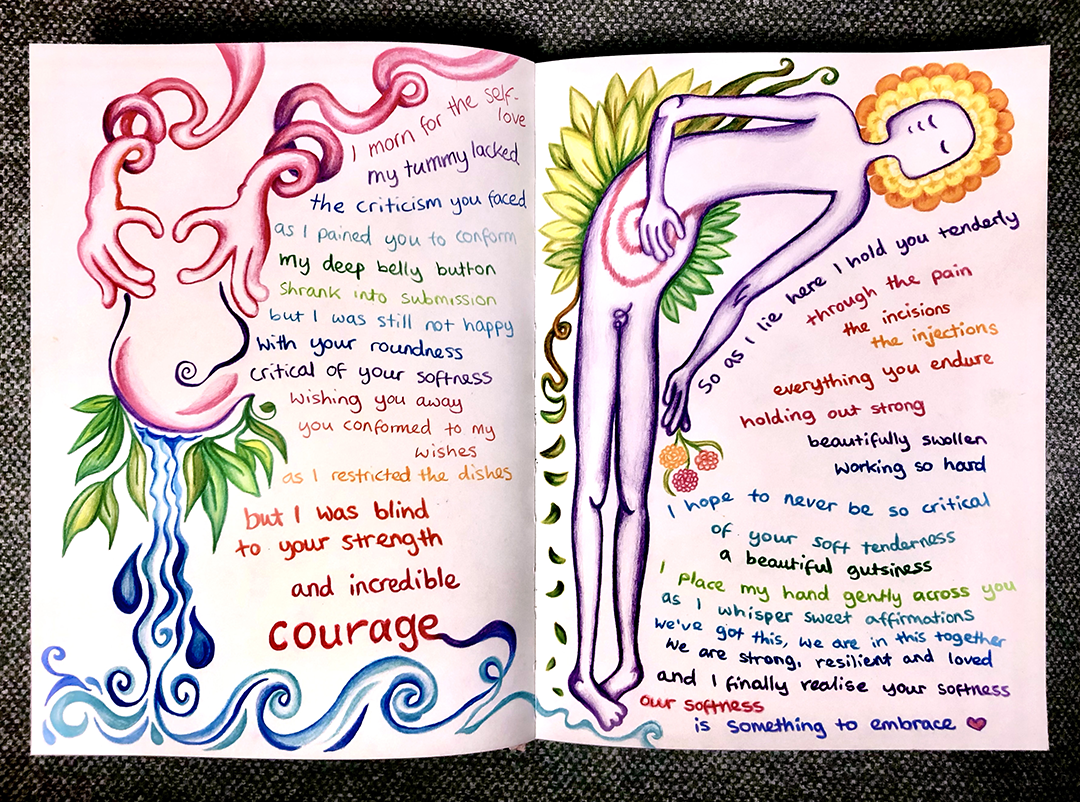 I morn for the self-
love
my tummy lacked
the criticism you faced
as I pained you to conform
my deep belly button
shrank into submission
but I was still not happy
with your roundness
critical of your softness
wishing you away
you conformed to my
wishes
as I restricted the dishes
but I was blind
to your strength
and incredible
courage
So as I lie here I hold you tenderly
through the pain
the incisions
the injections
everything you endure
holding out strong
beautifully swollen
working so hard
I hope to never be so critical
of your soft tenderness
a beautiful gutsiness
I place my hand gently across you
as I whisper sweet affirmations
we've got this, we are in this together
we are strong, resilient and loved
and I finally realise your softness
our softness
is something to embrace